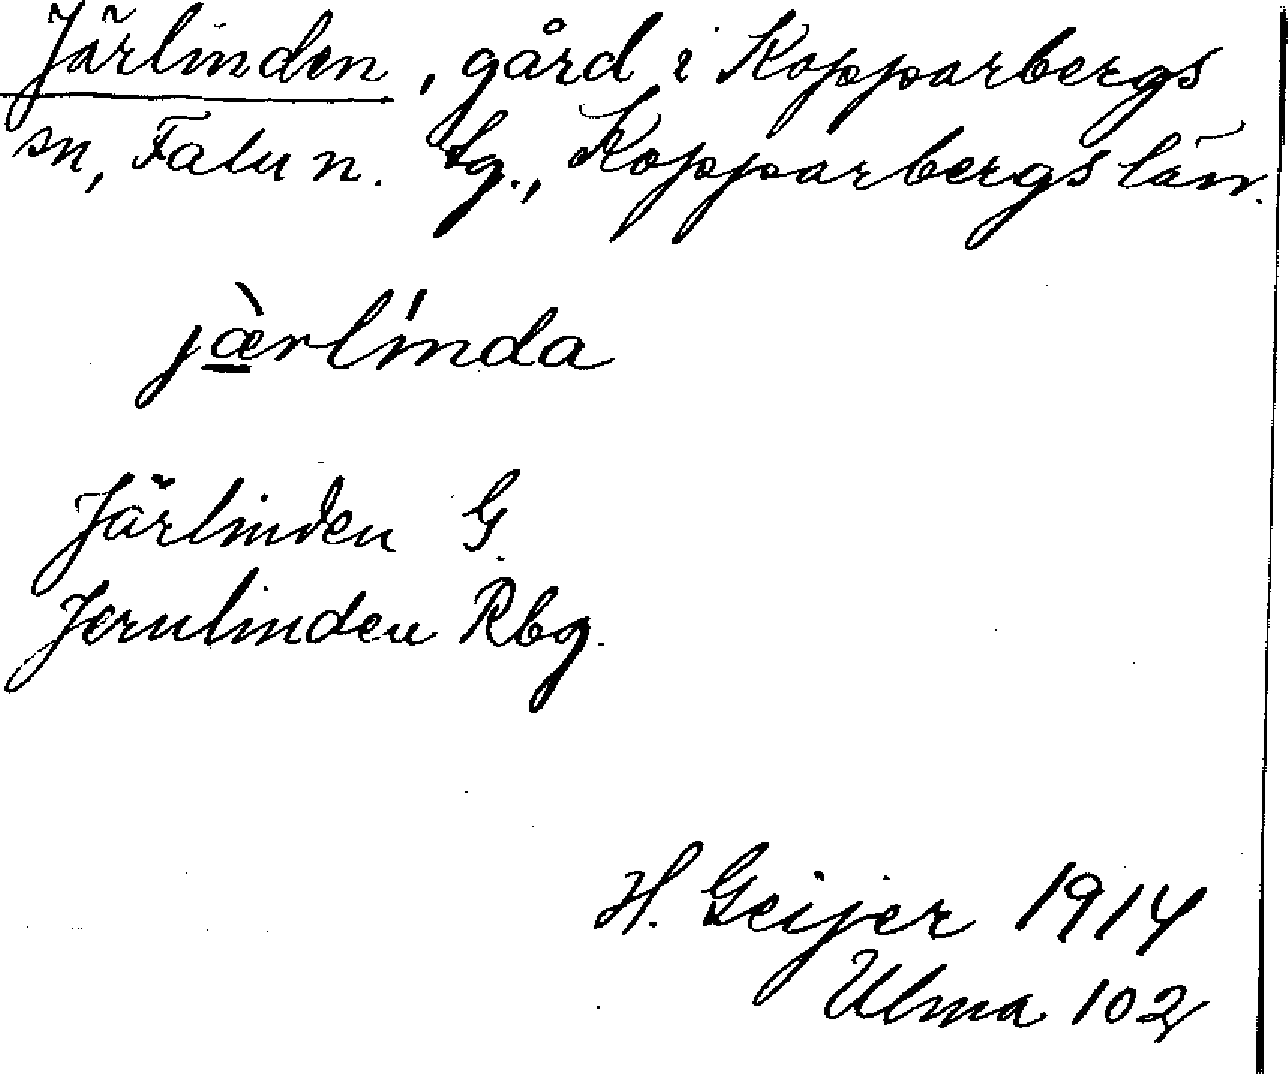 Järlinden, gård i Kopparbergs
sn, Falu n. tg., Kopparbergs län.
jæ̱̀rlínda
Järlinden G.
Jernlinden Rbg.
H. Geijer 1914
Ulma 102